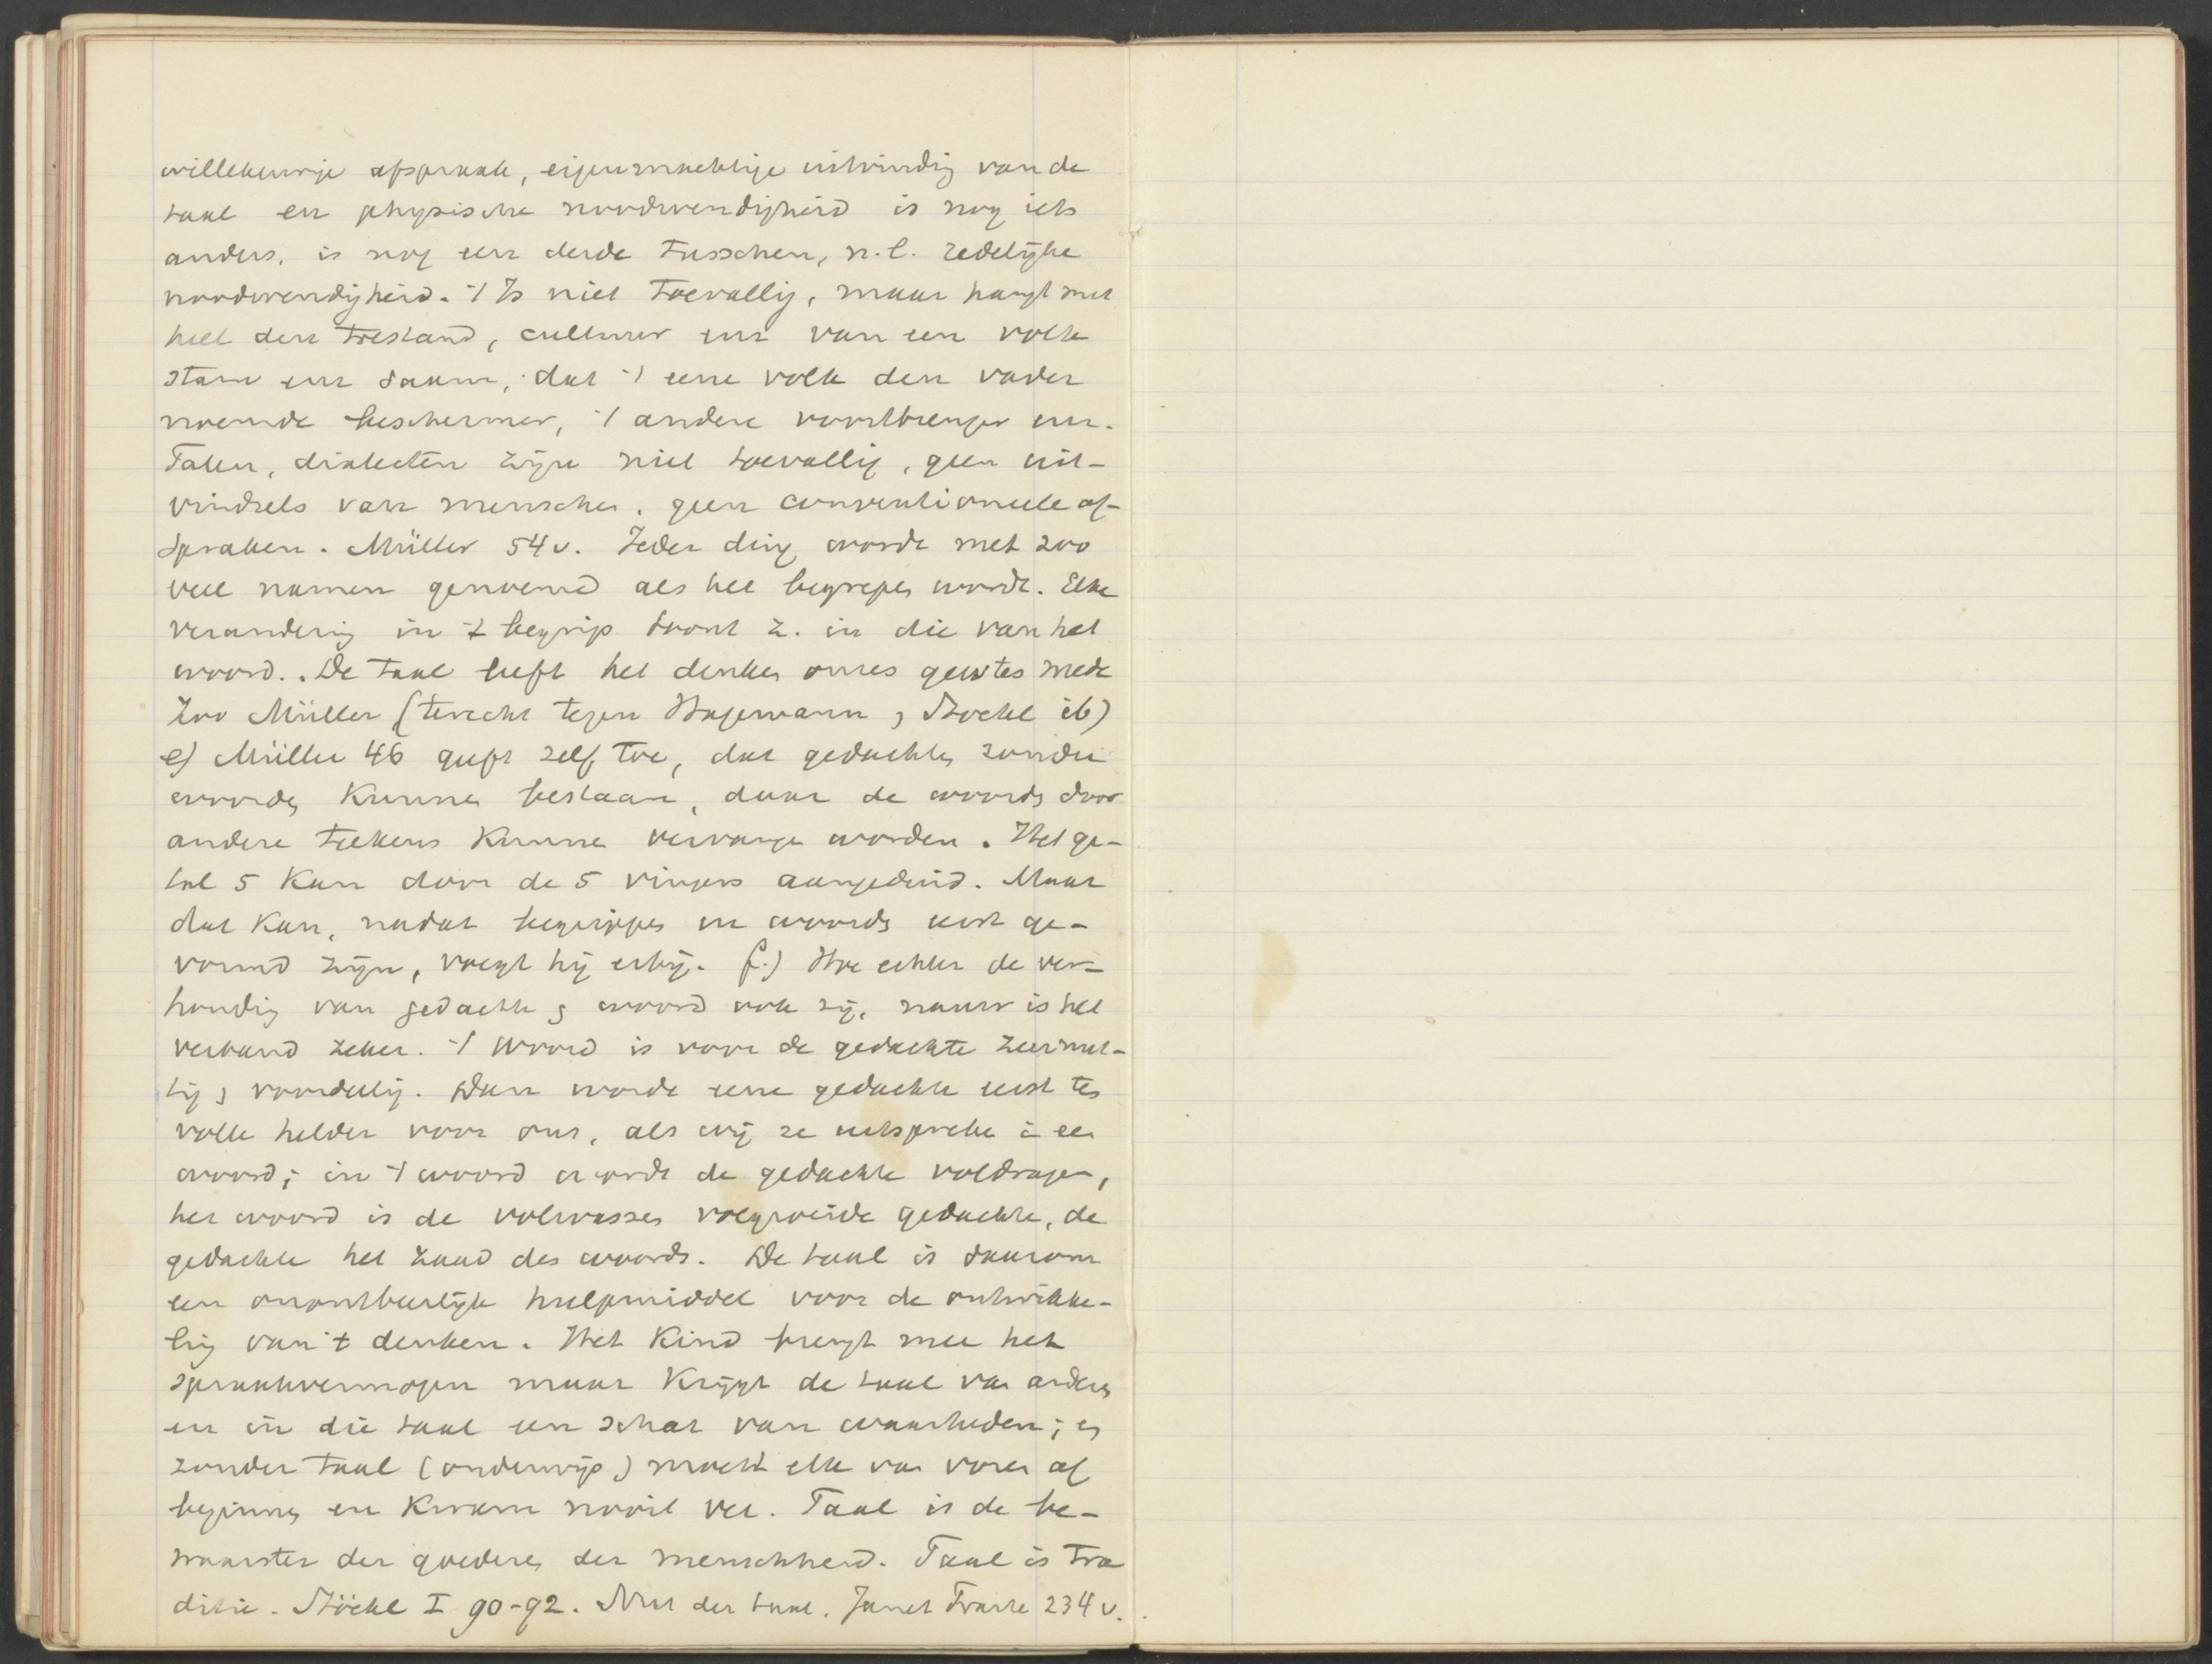 willekeurige afspraak, eigenmachtige uitvindig van de
taal en physische noodwendigheid is nog iets
anders, is nog een derde tusschen, n.l. zedelijke
noodwendigheid. 't Is niet toevallig, maar hangt met
heel den toestand, cultuur enz van een volk
stam enz saam, dat 't eene volk den vader
noemde beschermer, 't andere voortbrenger enz.
Talen, dialecten zijn niet toevallig, geen uit-
vindsels van menschen, geen conventioneele af-
spraken. Müller 54 v. Ieder ding wordt met zoo
veel namen genoemd als het begrepen wordt. Elke
verandering in 't begrip toont z. in die van het
woord. De taal leeft het denken onzes geestes mede
Zoo Müller (terecht tegen Hagemann, Stöckl ib)
e) Müller 46 geeft zelf toe, dat gedachten zonder
woorden kunnen bestaan, daar de woorden door
andere teekens kunne vervange worden. Het ge-
tal 5 kan door de 5 vingers aangeduid. Maar
dat kan, nadat begrippen en woorden eerst ge-
vormd zijn, voegt hij erbij. f.) Hoe echter de ver-
houdig van gedachte & woord ook zij, nauw is het
verband zeker. 't Woord is voor de gedachte zeer nut-
tig & voordeelig. Dan wordt eene gedachte eerst ten
volle helder voor ons, als wij ze uitspreke in een
woord; in 't woord wordt de gedachte voldragen,
het woord is de volwassen volgroeide gedachte, de
gedachte het zaad des woords. De taal is daarom
een onontbeerlijk hulpmiddel voor de ontwikke-
ling van 't denken. Het kind brengt mee het
spraakvermogen maar krijgt de taal van anderen
en in die taal een schat van waarheden; en
zonder taal (onderwijs) moest elk van voren af
beginnen en kwam nooit ver. Taal is de be-
waarster der goederen der menschheid. Taal is tra
ditie. Stöckl I 90-92. Nut der taal. Janet Traité 234 v.